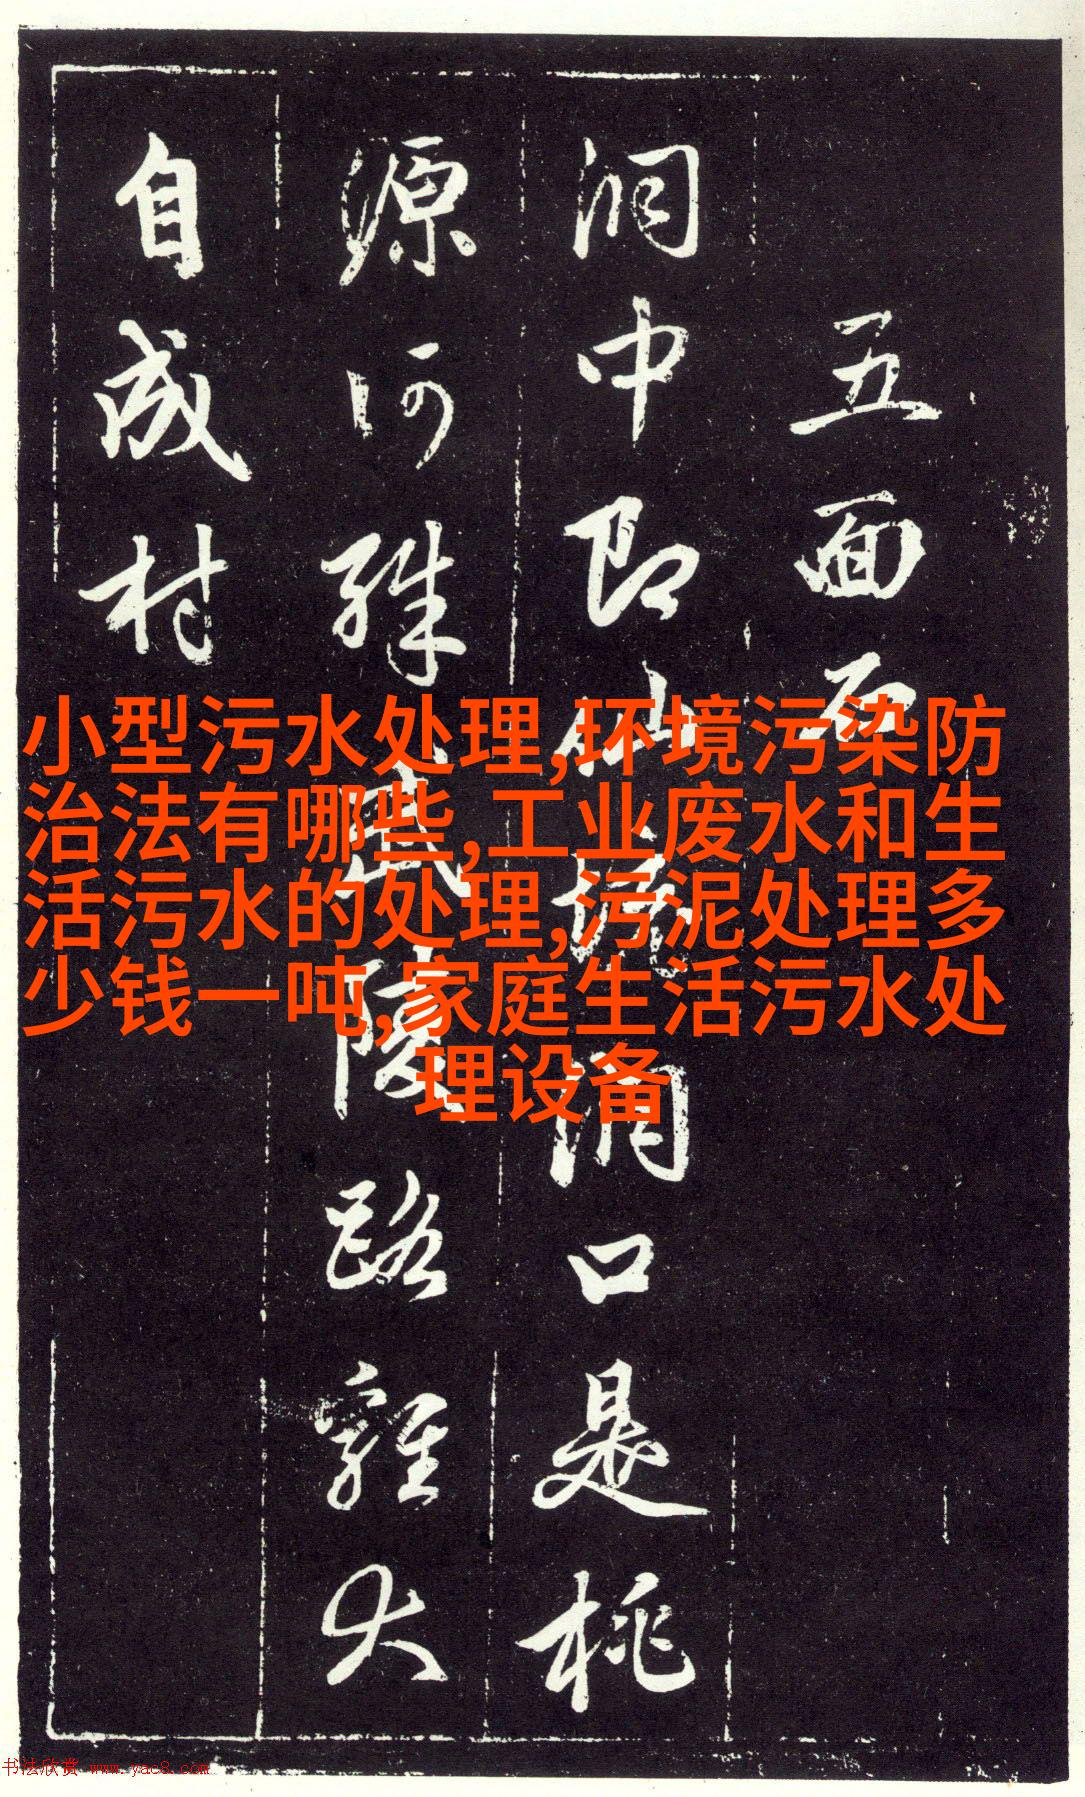 五面
洞中即仙境洞口是桃
源何殊武陵路雞犬
自成村
小型污水处理,环境污染防
治法有哪些,工业废水和生
活污水的处理,污泥处理多
少钱一吨,家庭生活污水处
理设备
书法欣赏 www.yac8.com